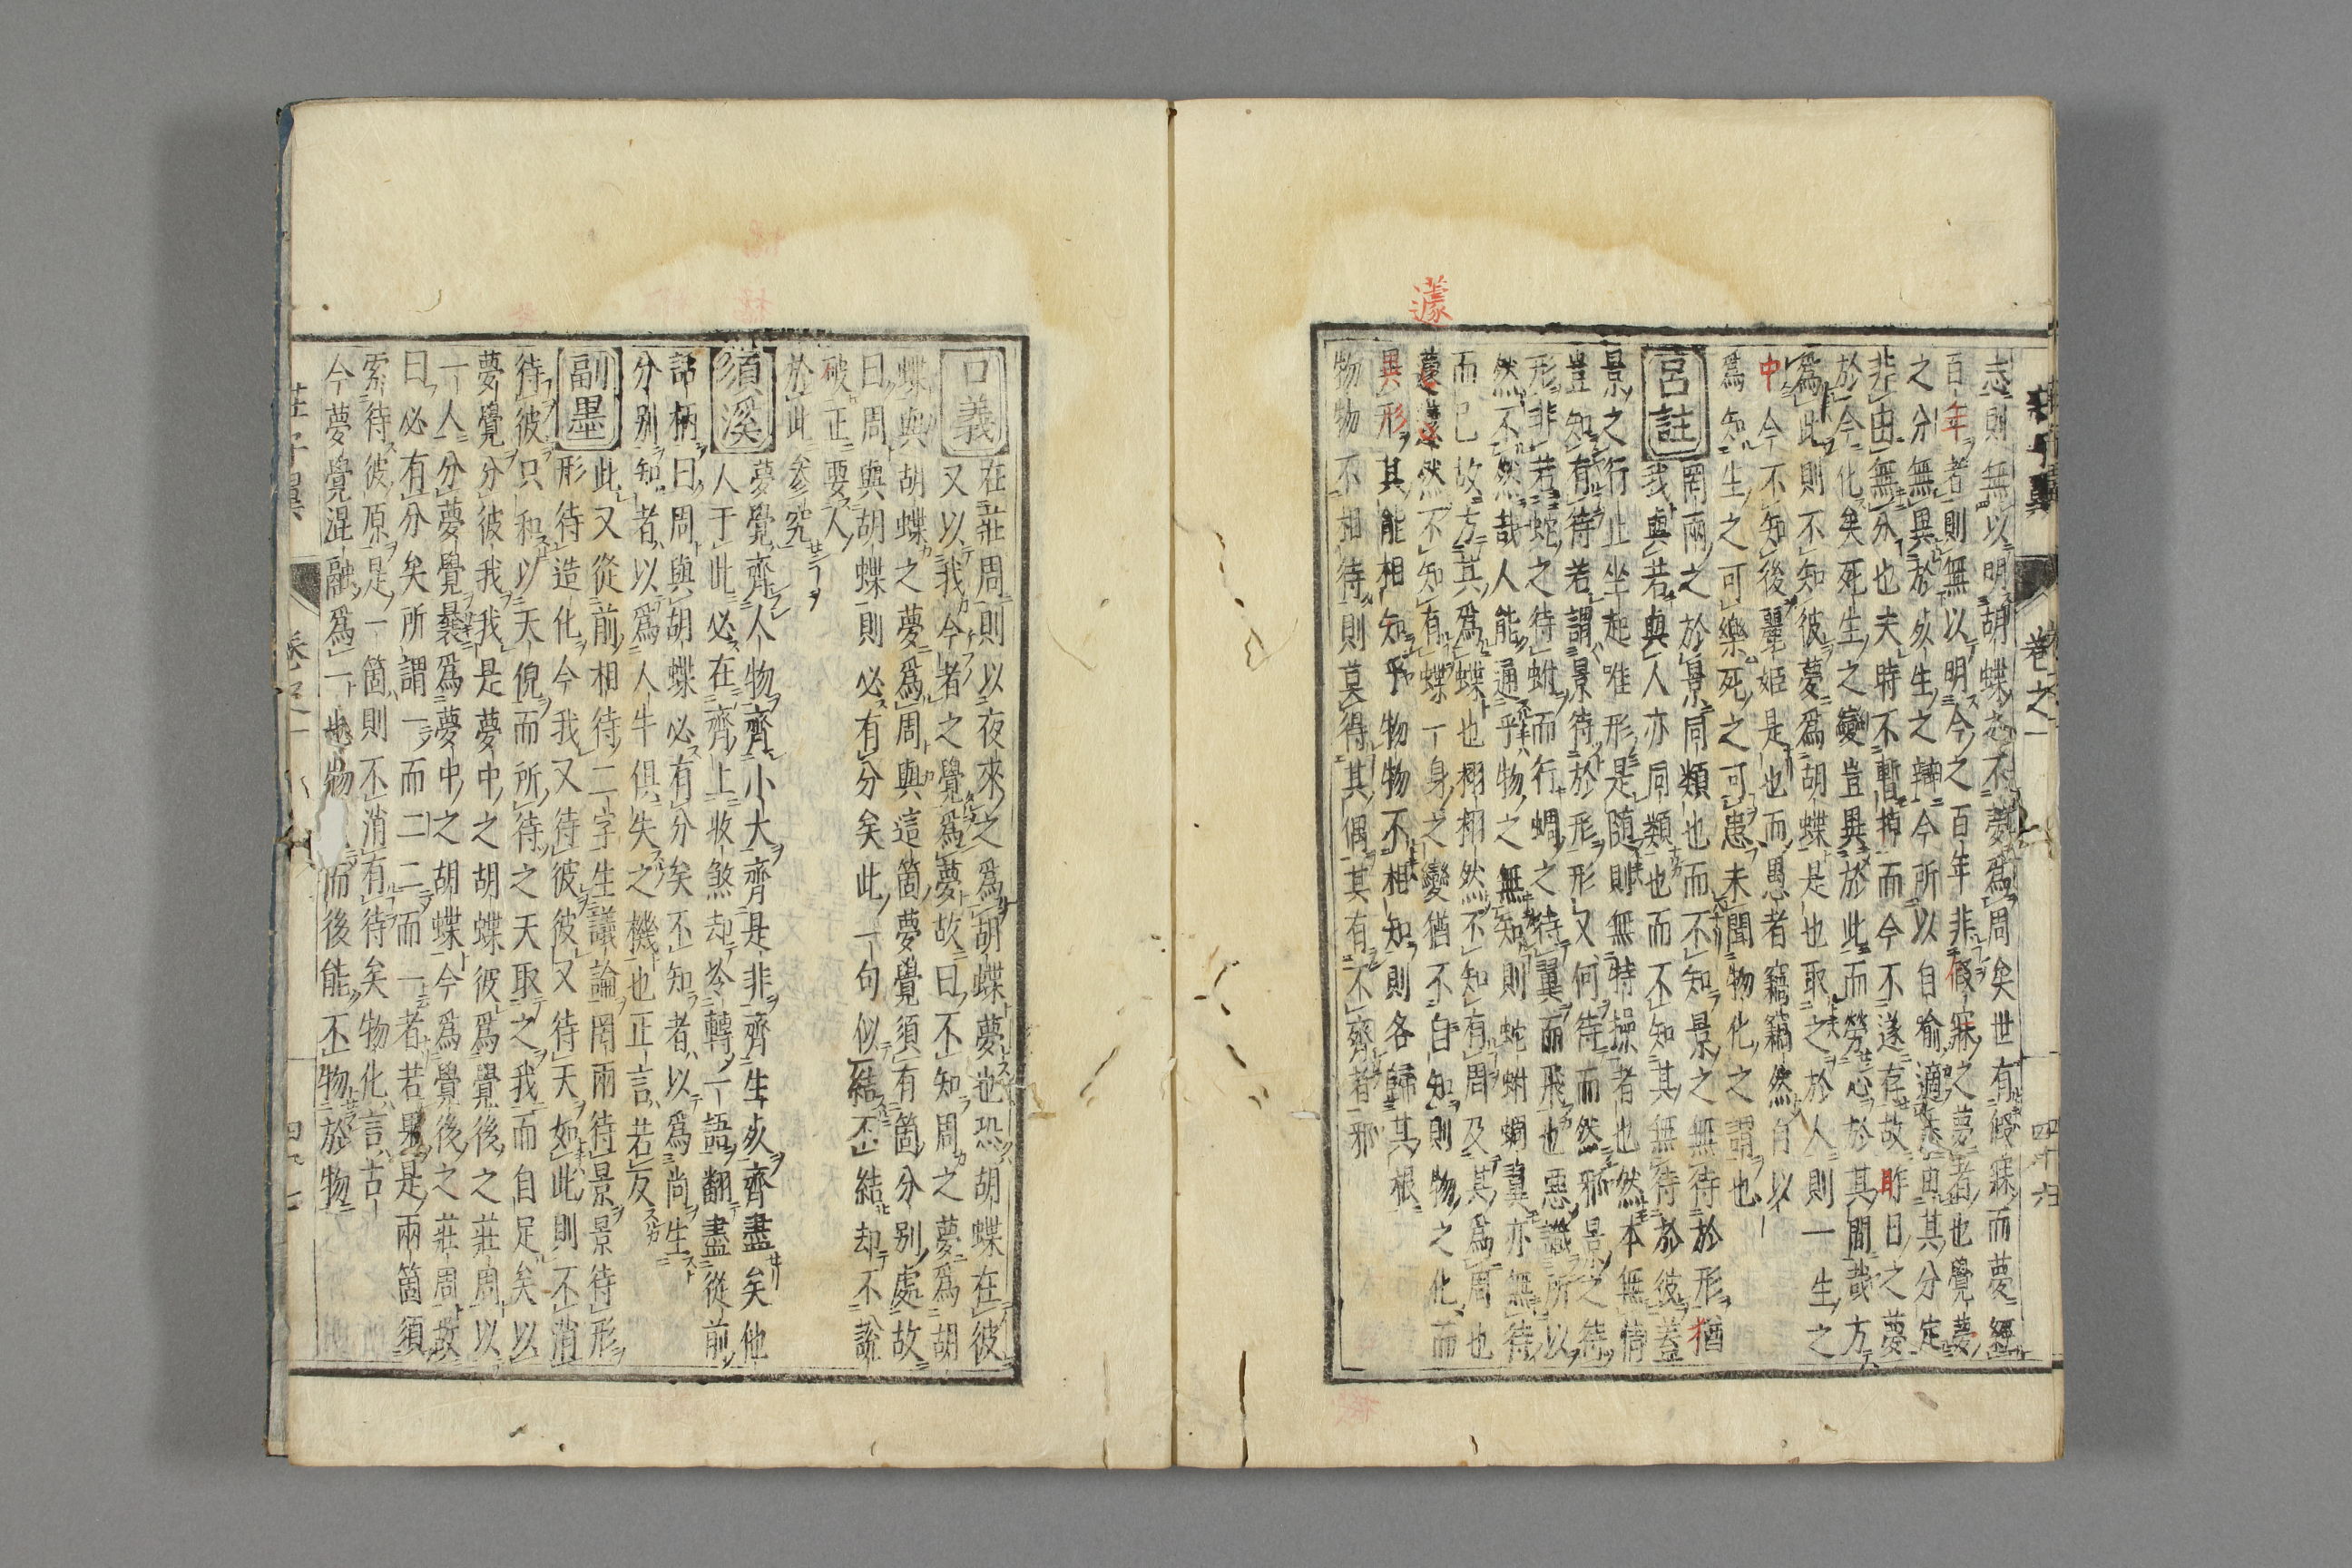 莊子翼
卷之一
四十六
志則無以明胡蝶之不夢爲周矣世有假寐而夢經
百年者則無以明今之百年非假寐之夢者也覺夢
之分無異於死生之辯今所以自喻適志由其分定
非由無分也夫時不暫停而今不遂存故昨日之夢
於今化矣死生之變豈異於此而勞心於其間哉方
爲此則不知彼夢爲胡蝶是也取之於人則一生之
中今不知後麗姬是也而愚者竊竊然自以
爲知生之可樂死之可患未聞物化之謂也
呂註
罔兩之於景同類也而不知景之無待於形猶
我與若與人亦同類也而不知其無待於彼蓋
景之行止坐起唯形是隨則無特操者也然本無情
豈知有待若謂景待於形形又何待而然邪景之待
形非若蛇之待蚹而行蜩之待翼而飛也惡識所以
然不然哉人能通乎物之無知則蛇蚹蜩翼亦無待
而已故方其爲蝶也栩栩然不知有周及其爲周也
蘧蘧然不知有蝶一身之變猶不自知則物之化而
異形其能相知乎物物不相知則各歸其根
物物不相待則莫得其偶其有不齊者邪
蘧
口義
在莊周則以夜來之爲胡蝶夢也恐胡蝶在彼
又以我今者之覺爲夢故曰不知周之夢爲胡
蝶與胡蝶之夢爲周與這箇夢覺須有箇分別處故
曰周與胡蝶則必有分矣此一句似結不結却不說
破正要人
於此參究
須溪
夢覺齊人物齊小大齊是非齊生死齊盡矣他
人于此必在齊上收煞却冷轉一語翻盡從前
話柄曰周與胡蝶必有分矣不知者以爲尚生
分別知者以爲人牛俱失之機也正言若反
副墨
此又從前相待二字生議論罔兩待景景待形
形待造化今我又待彼彼又待天如此則不消
待彼只和以天倪而所待之天取之我而自足矣以
夢覺分彼我我是夢中之胡蝶彼爲覺後之莊周以
一人分夢覺曩爲夢中之胡蝶今爲覺後之莊周故
曰必有分矣所謂一而二二而一者若果是兩箇須
索待彼原是一箇則不消有待矣物化言古
今夢覺混融爲一也物
而後能不物於物
莊子翼
卷之一
四十七